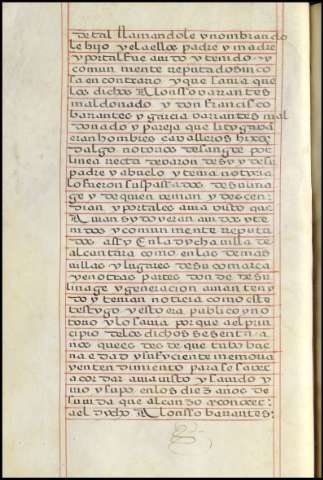 de tal llamandole y nombrando
le hijo y el a ellos padre y madre
y por tal fue auido y tenido y
comun mente reputado sin co
sa en contrario y que sauia que
los dichos Alonsso barantes
maldonado y don francisco
barantes y garcia barantes mal
donado y pareja que litygaba
eran hombres caualleros hixos
dalgo notorios de sangre por
linea recta de varon de sy y de su
padre y abuelo y tenia noticia
lo fueron sus pasados de su lina
ge y de quien benian y dos cen
dian y por tales auia visto que
A uian sydo y eran auidos y te
nidos y comun mente reputa
dos assy En la dycha villa de
alcantara como en las demas
villas y lugares de su comarca
y en otras partes donde de su
linage y generacion auian teny
do y tenian noticia como este
testygo y esto era publico y no
torio y lo sauia por que a el prin
cipio de los dichos sesenta a
ños queel testygo tubo bue
na edad y sufyciente memoria
y entendimiento para se saber
acordar auia visto y sauido y
vio y supo en los diez años de
su vida que alcanzo a conocer
a el dycho Alonsso barantes: